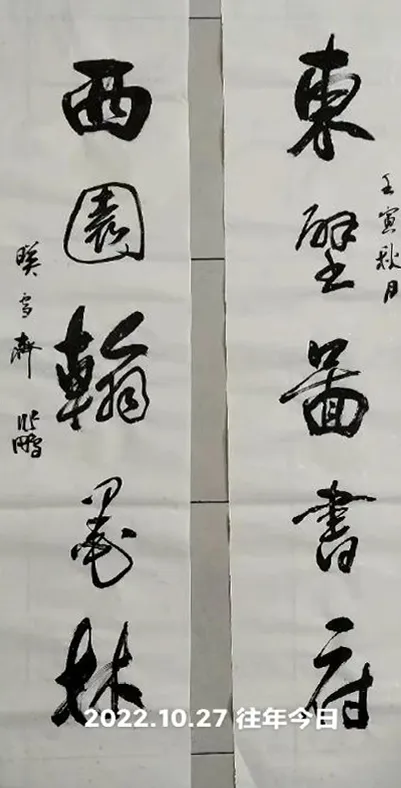 東壁圖書府
壬寅秋月
西園翰墨林
雪齋
2022.10.27 往年今日